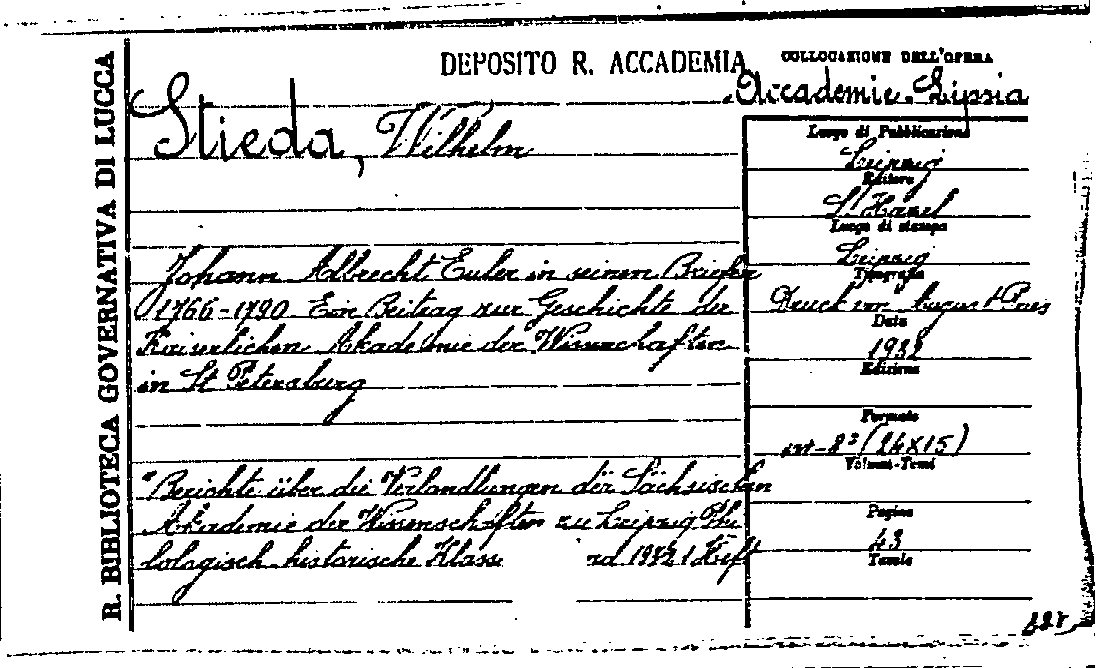 R. BIBLIOTECA GOVERNATIVA DI LUCCA
DEPOSITO R. ACCADEMIA
COLLOCAZIONE DELL'OPERA
Accademie. Lipsia
Stieda, Wilhelm
Johann Albrecht Euler in seinen Briefen
1766-1790 Ein Beitrag zur Geschichte der
Kaiserlichen Akademie der Wissenschaften
in St Petersburg
"Berichte über die Verlandlungen der Sächsischen
Akademie der Wissenschaften zu Leipzig Phi
lologisch-historische Klasse 1932 1 Heft
Luogo di Pubblicazione
Leipzig
Editore
S. Hirzel
Luogo di stampa
Leipzig
Tipografia
Druck von August Pries
Data
1932
Edizione
Formato
in-8° (24x15)
Volumi-Tomi
Pagine
43
Tavole